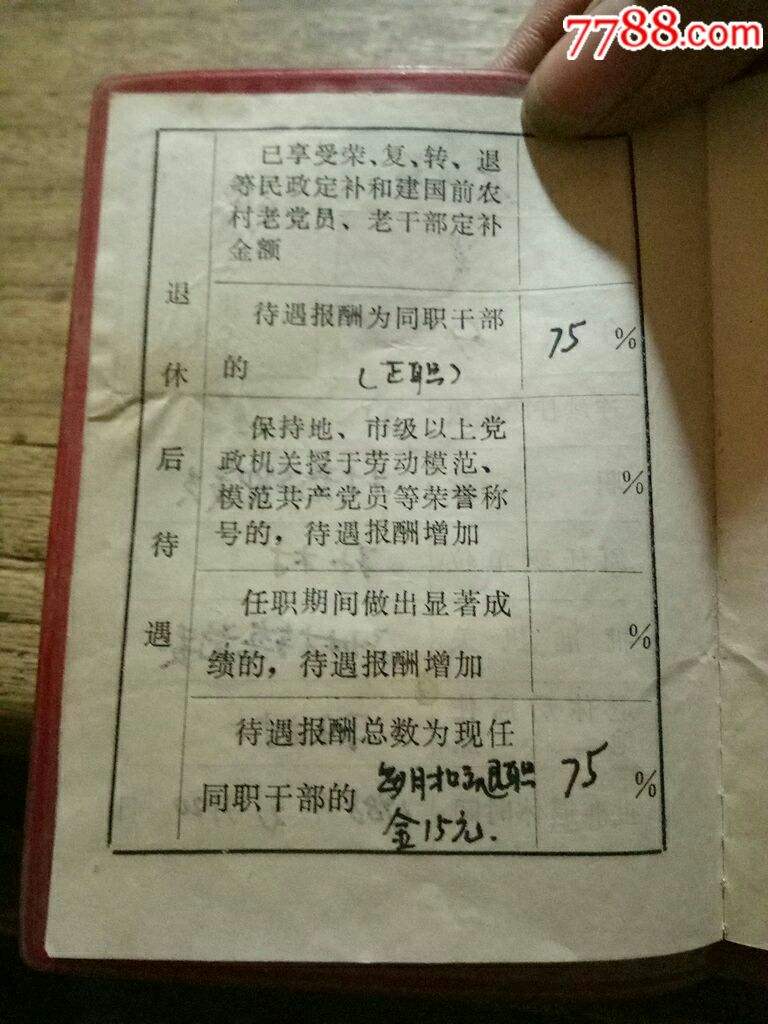 7788.com
退休后待遇
已享受荣、复、转、退
等民政定补和建国前农
村老党员、老干部定补
金额
待遇报酬为同职干部
的 (正职)
75 %
保持地、市级以上党
政机关授于劳动模范、
模范共产党员等荣誉称
号的，待遇报酬增加
%
任职期间做出显著成
绩的，待遇报酬增加
%
待遇报酬总数为现任
同职干部的 每月扣退职
金15元.
75 %